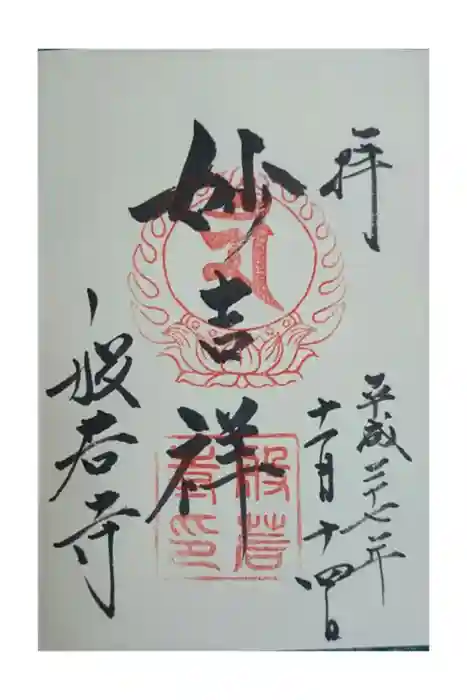 拝
平成二十七年
十一月十四日
妙吉祥
般若寺